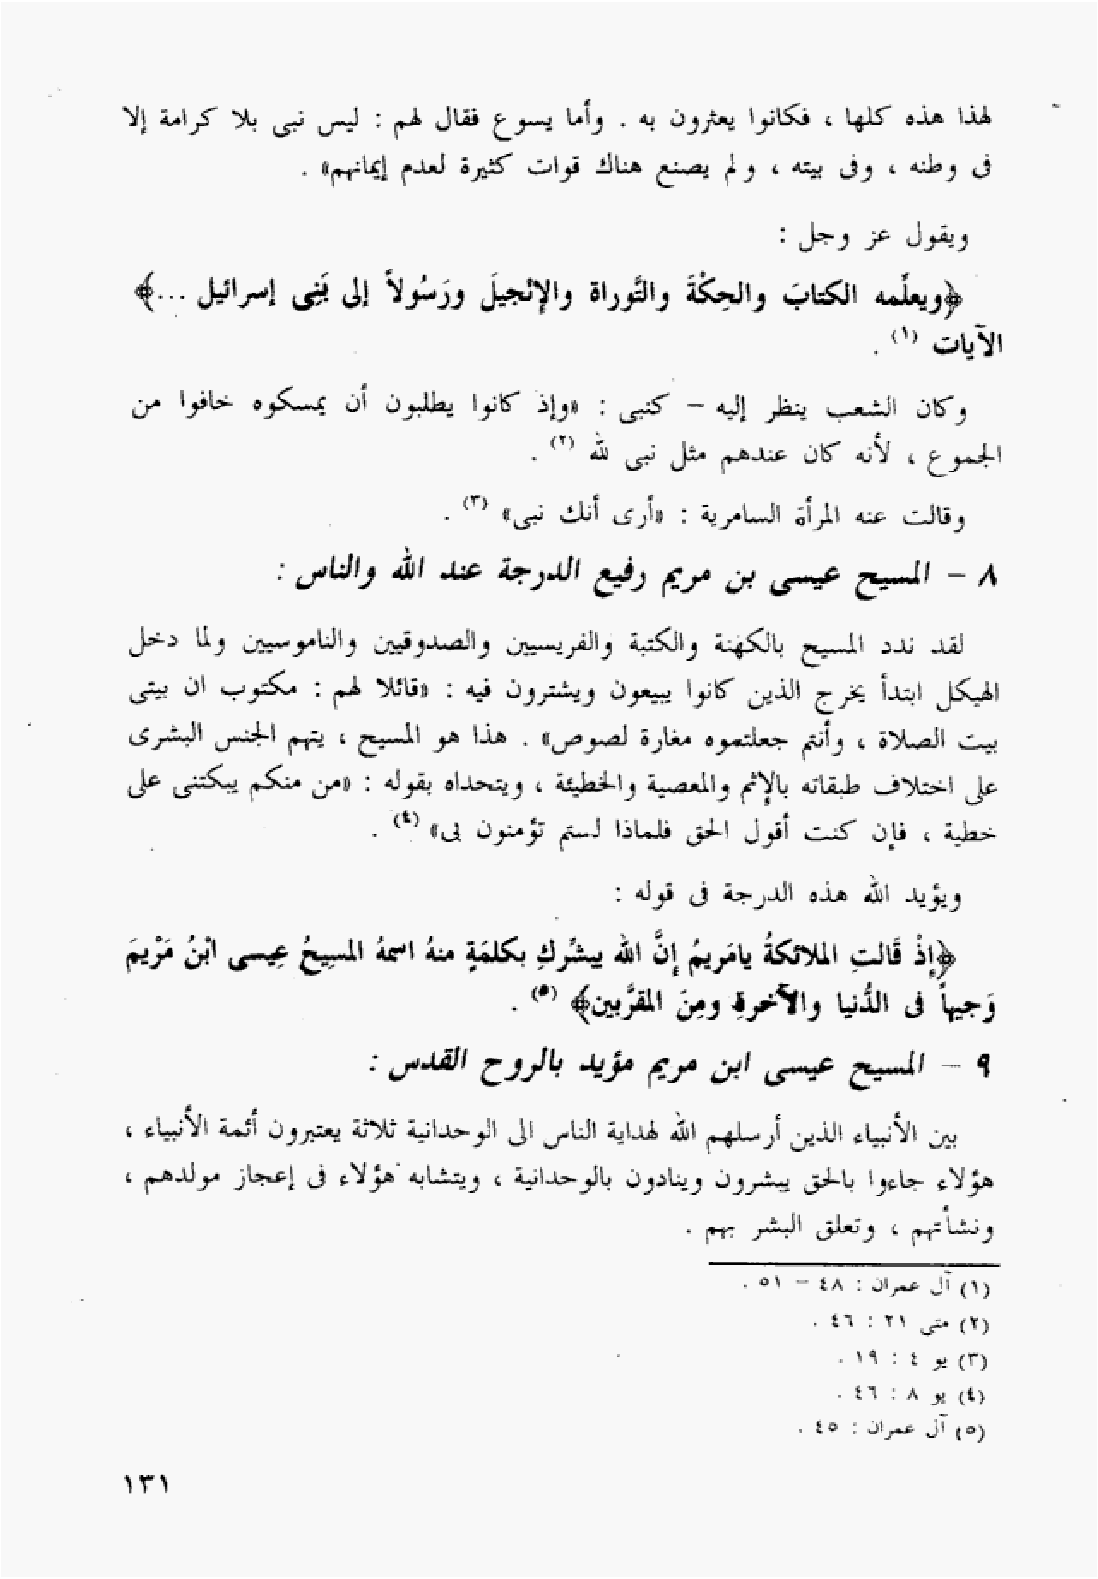 لهذا هذه كلها ، فكانوا يعثرون به . وأما يسوع فقال لهم : ليس نبى بلا كرامة إلا
فى وطنه ، وفى بيته ، ولم يصنع هناك قوات كثيرة لعدم إيمانهم» .
ويقول عز وجل :
﴿ويعلِّمه الكتابَ والحِكْمَةَ والتَّوراة والإنْجيلَ ورَسُولاً إلى بَنِى إسرائيل ...﴾
الآيات (١) .
وكان الشعب ينظر إليه – كنبى : «وإذ كانوا يطلبون أن يمسكوه خافوا من
الجموع ، لأنه كان عندهم مثل نبى لله (٢) .
وقالت عنه المرأة السامرية : «أرى أنك نبى» (٣) .
٨ – المسيح عيسى بن مريم رفيع الدرجة عند الله والناس :
لقد ندد المسيح بالكهنة والكتبة والفريسيين والصدوقيين والناموسيين ولما دخل
الهيكل ابتدأ يخرج الذين كانوا يبيعون ويشترون فيه : «قائلا لهم : مكتوب ان بيتى
بيت الصلاة ، وأنتم جعلتموه مغارة لصوص» . هذا هو المسيح ، يتهم الجنس البشرى
على اختلاف طبقاته بالإثم والمعصية والخطيئة ، ويتحداه بقوله : «من منكم يبكتنى على
خطية ، فإن كنت أقول الحق فلماذا لستم تؤمنون بى» (٤) .
ويؤيد الله هذه الدرجة فى قوله :
﴿إذْ قَالتِ الملائكةُ يامَريمُ إنَّ الله يبشِّركِ بكلمَةٍ منهُ اسمُهُ المسِيحُ عِيسى ابْنُ مَرْيمَ
وَجيهاً فى الدُّنيا والآخرةِ ومِنَ المقرَّبين﴾ (٥) .
٩ – المسيح عيسى ابن مريم مؤيد بالروح القدس :
بين الأنبياء الذين أرسلهم الله لهداية الناس الى الوحدانية ثلاثة يعتبرون أئمة الأنبياء ،
هؤلاء جاءوا بالحق يبشرون وينادون بالوحدانية ، ويتشابه هؤلاء فى إعجاز مولدهم ،
ونشأتهم ، وتعلق البشر بهم .
(١) آل عمران : ٤٨ – ٥١ .
(٢) متى ٢١ : ٤٦ .
(٣) يو ٤ : ١٩ .
(٤) يو ٨ : ٤٦ .
(٥) آل عمران : ٤٥ .
١٣١